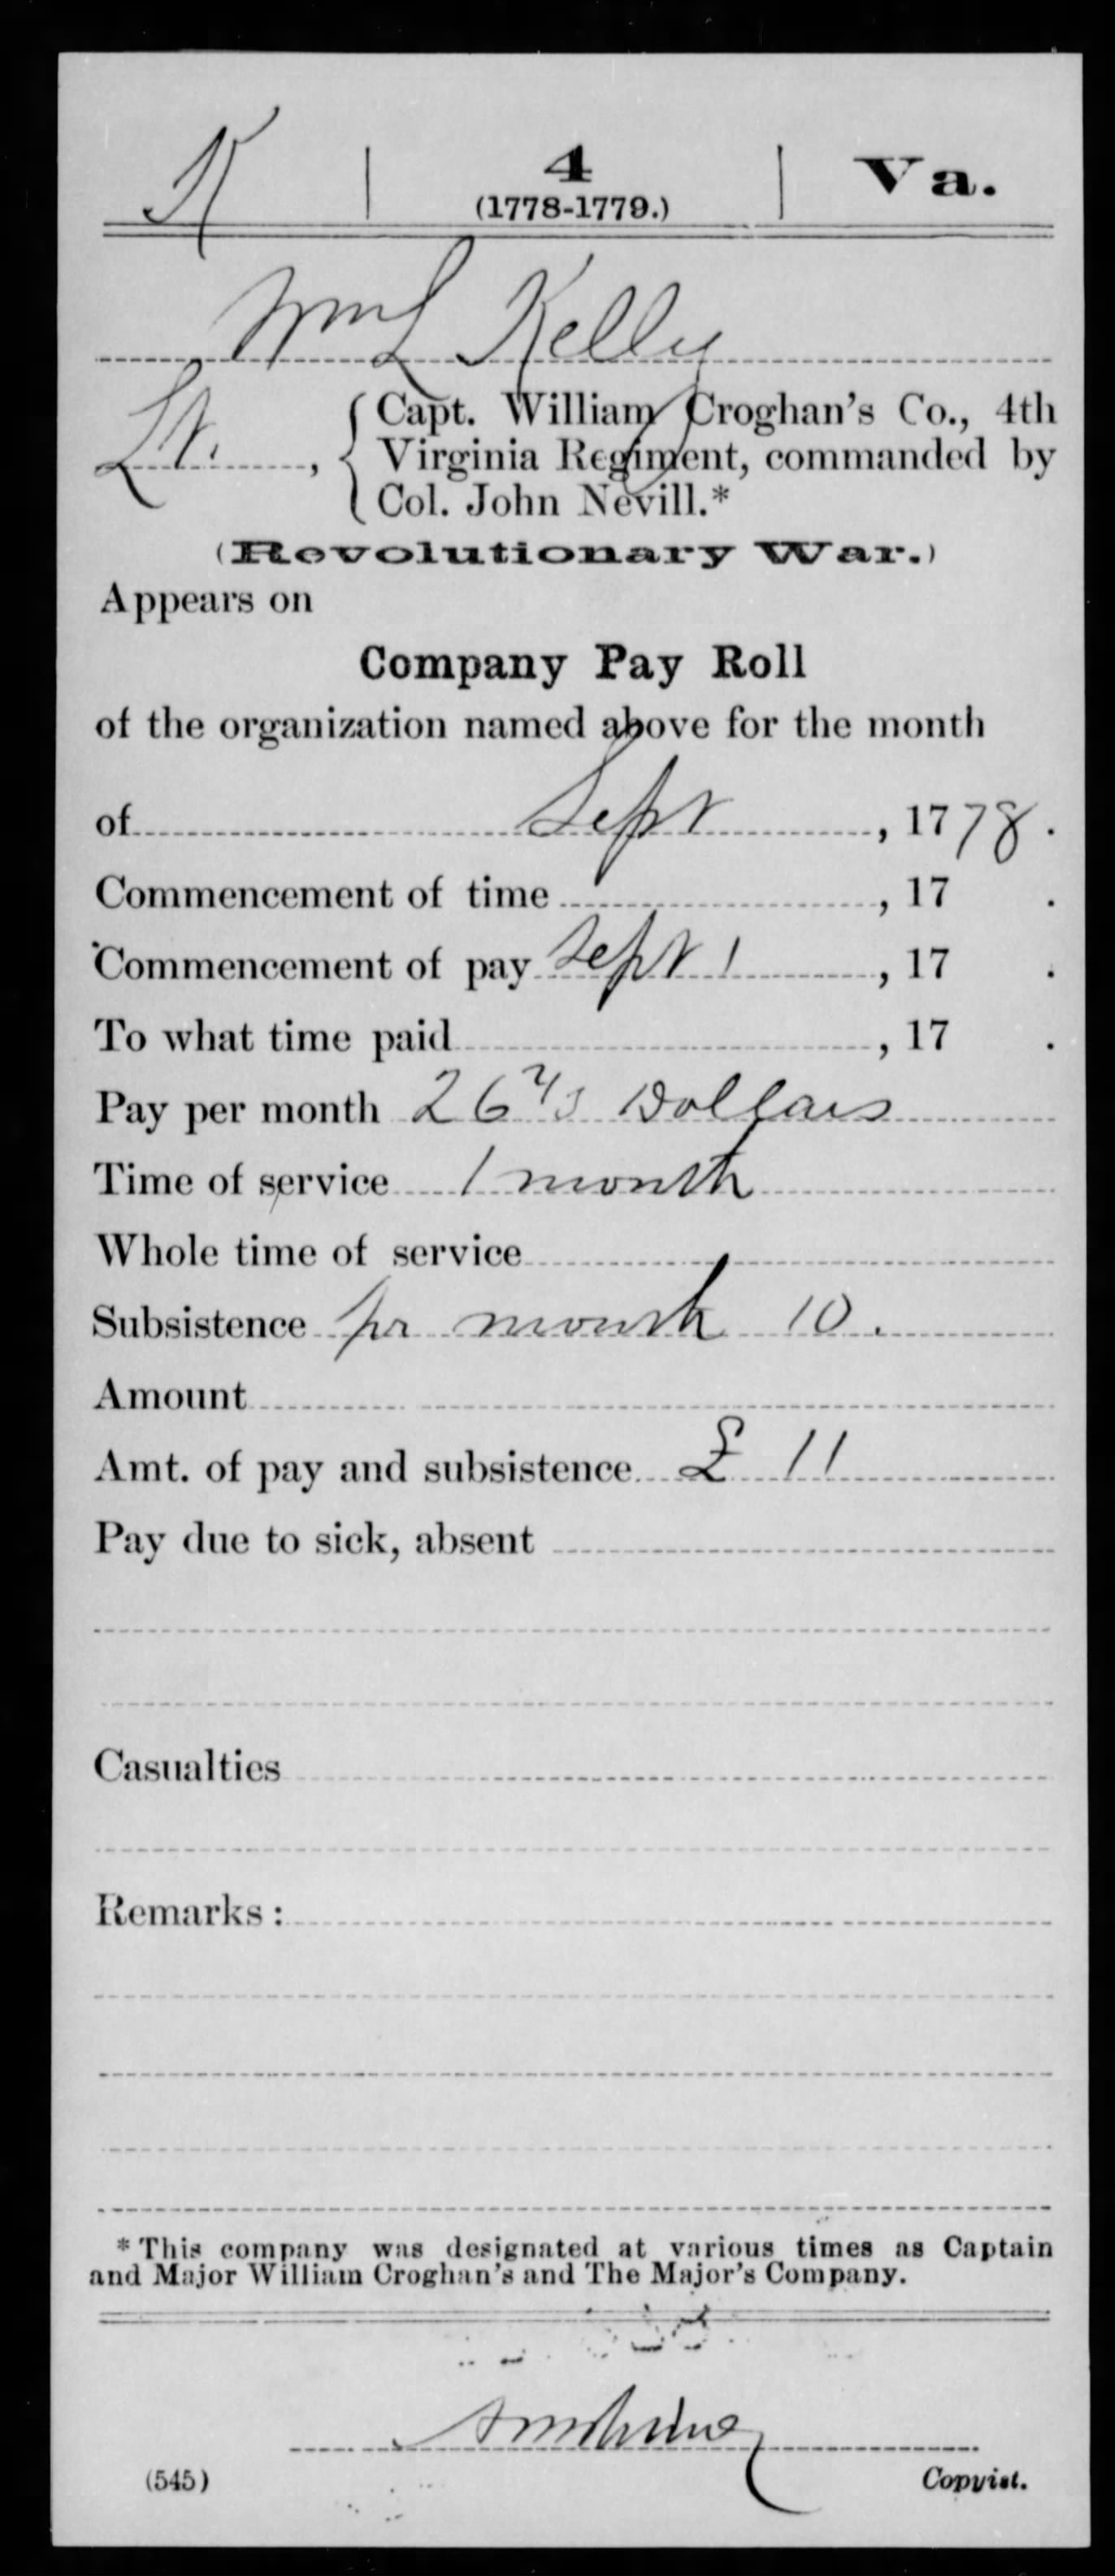 K | 4 | Va.
(1778-1779.)
Wm L Kelly
Lt., { Capt. William Croghan's Co., 4th
Virginia Regiment, commanded by
Col. John Nevill.*
(Revolutionary War.)
Appears on
Company Pay Roll
of the organization named above for the month
of Sept, 1778.
Commencement of time , 17 .
Commencement of pay Sept 1 , 17 .
To what time paid , 17 .
Pay per month 26 2/3 Dollars
Time of service 1 month
Whole time of service
Subsistence pr month 10.
Amount
Amt. of pay and subsistence £ 11
Pay due to sick, absent
Casualties
Remarks:
* This company was designated at various times as Captain
and Major William Croghan's and The Major's Company.
(545) Copyist.